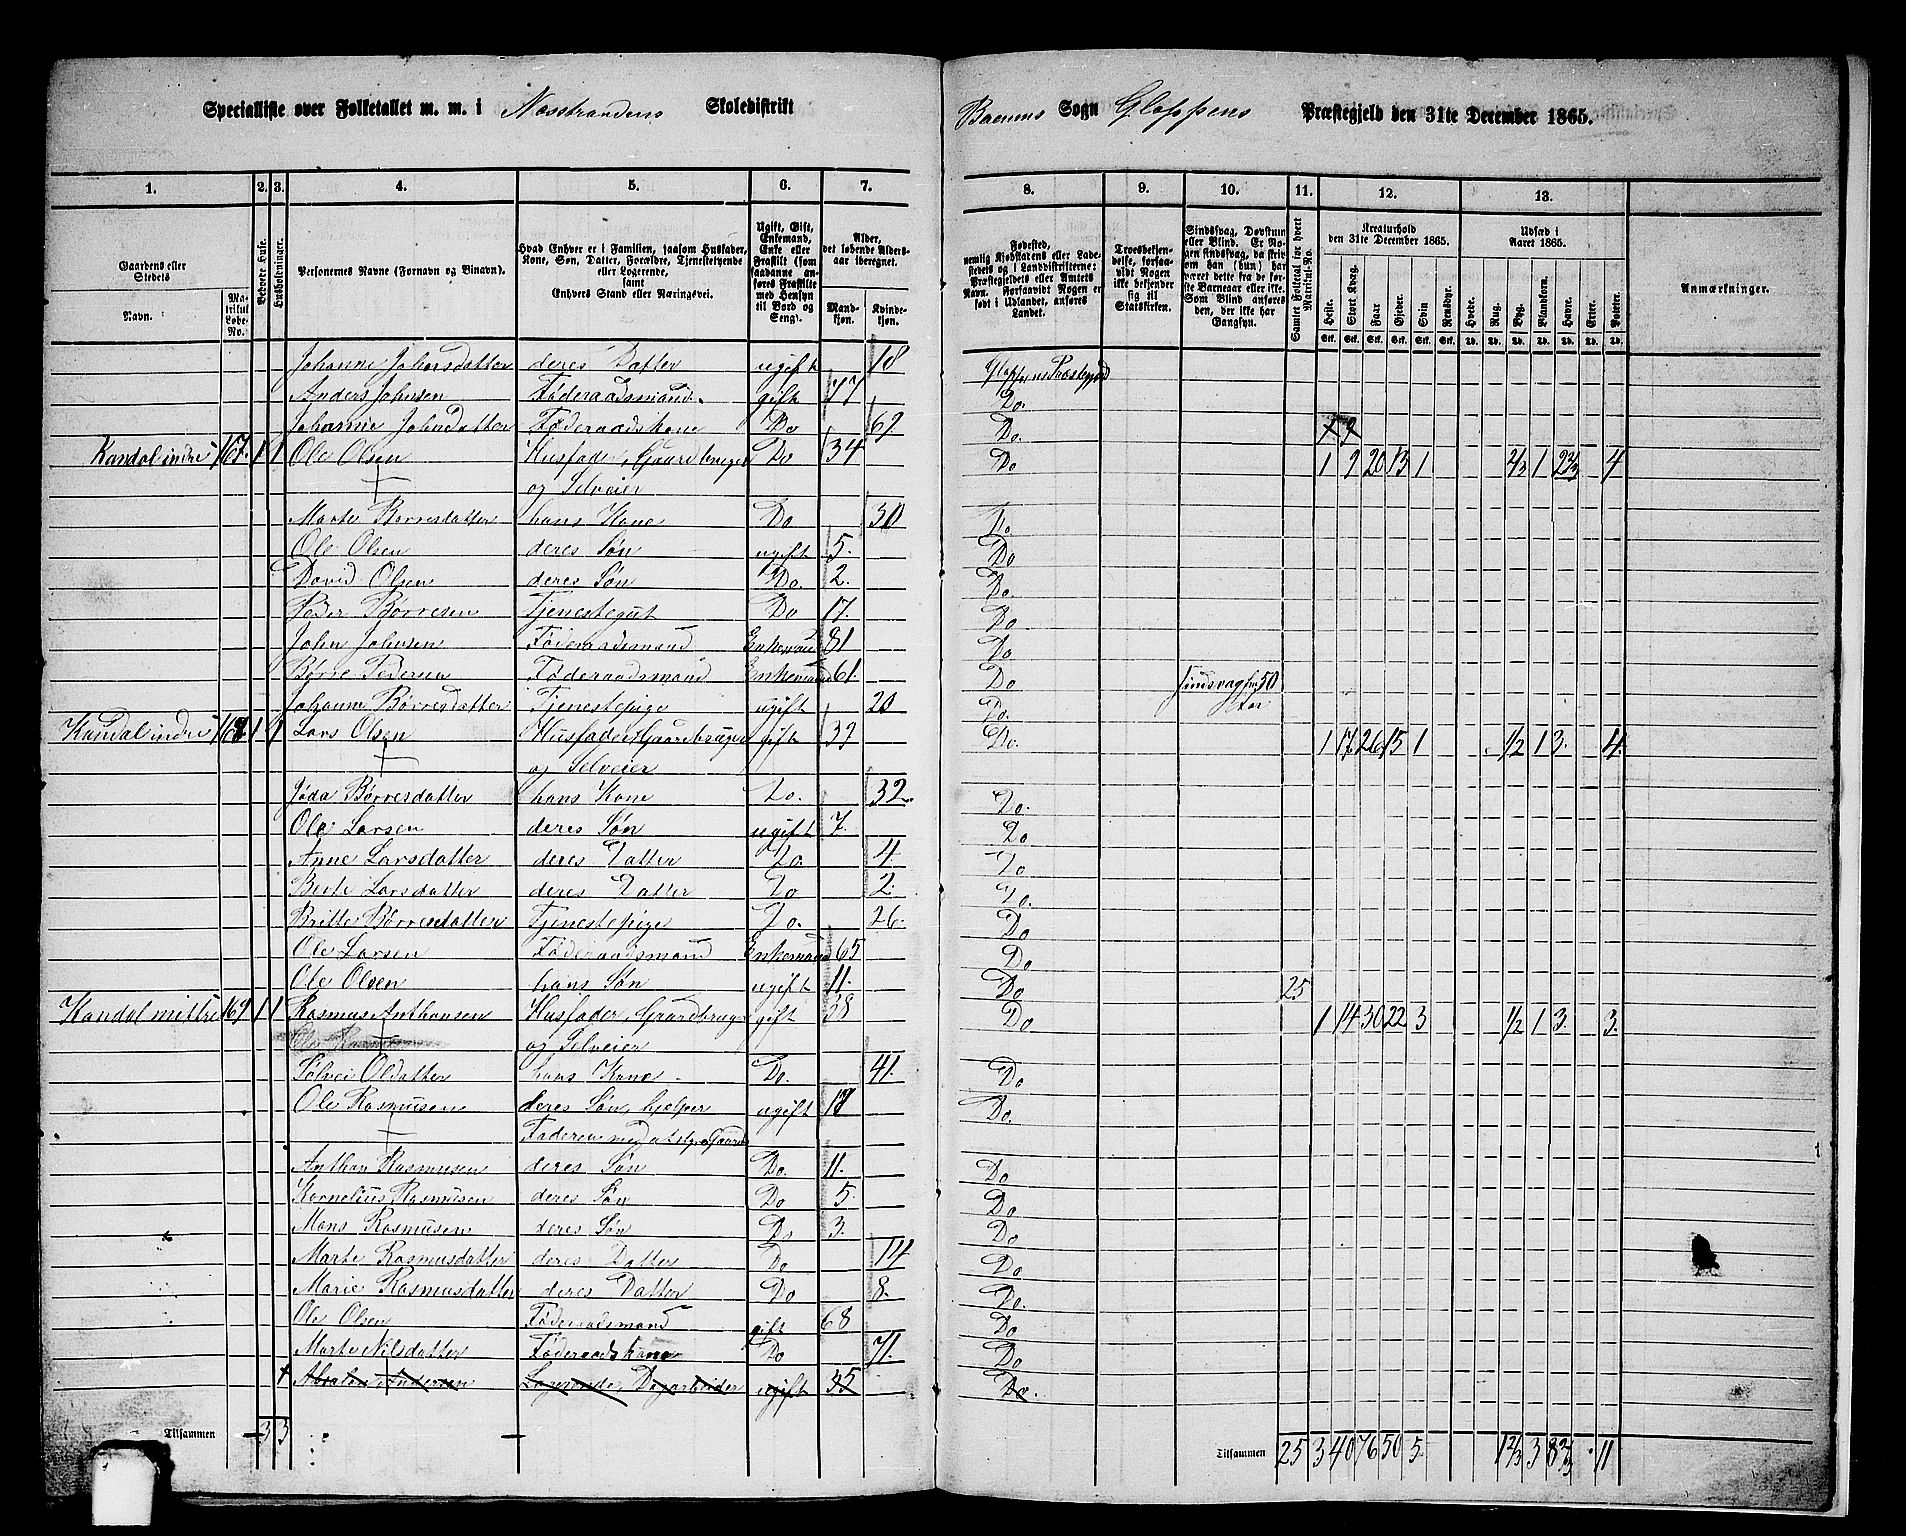 Specialliste over Folketallet m. m. i Nosstrandens Skoledistrikt
Sogn Gloppens Præstegjeld den 31te December 1865.
1. 2. 3. 4. 5. 6. 7.
8. 9. 10. 11. 12. 13.
Gaardens eller Stedets
Navn.
Matrikul Løbe-No.
Beboede Huse.
Husholdninger.
Personernes Navne (Fornavn og Binavn).
Hvad Enhver er i Familien, saasom Husfader, Kone, Søn, Datter, Forældre, Tjenestetyende eller Logerende, samt Enhvers Stand eller Næringsvei.
Ugift, Gift, Enkemand, Enke eller Fraskilt (saadanne anføres Fraskilte med Hensyn til Bord og Seng).
Alder, det løbende Aldersaar iberegnet.
Mandkjøn. Kvindekjøn.
Fødested, nemlig Kjøbstadens eller Ladestedets og i Landdistrikterne: Præstegjeldets eller Amtets Navn. Forsaavidt Nogen er født i Udlandet, anføres Landet.
Troesbekjendelse, forsaavidt Nogen ikke bekjender sig til Statskirken.
Samlet Folketal for hvert Matrikul-No.
Kreaturhold den 31te December 1865.
Udsæd i Aaret 1865.
Heste. Stort Kvæg. Faar. Gjeder. Svin. Rensdyr.
Hvede. Rug. Byg. Blandkorn. Havre. Erter. Poteter.
Anmærkninger.
Johanne Johnsdatter deres Datter ugift 18 Gloppens Præstegjeld
Anders Johnsen Føderaadsmand gift 77 Do.
Johanne Johnsdatter Føderaadskone Do 69 Do
Kandal indre 167. 1 1 Ole Olsen Husfader, Gaardbruger Do 34 Do 1 9 20 13 1 2/3 1 2 2/3 4
og Selveier
Marte Børresdatter hans Kone Do 30 Do
Ole Olsen deres Søn ugift 5. Do
David Olsen deres Søn Do. 2. Do
Peder Børresen Tjenestegut Do 17. Do
John Johnsen Føderaadsmand Enkemand 81 Do
Børre Pedersen Føderaadsmand Enkemand 61. Do 50
Johanne Børresdatter Tjenestepige ugift 20 Do.
Kandal indre 168 1 1 Lars Olsen Husfader, Gaardbruger gift 39 Do. 1 17 26 15 1 1/2 1 3. 4
og Selveier
Børresdatter hans Kone Do. 32. Do.
Ole Larsen deres Søn ugift 7. Do
Anne Larsdatter deres Datter Do. 4. Do
Larsdatter deres Datter Do 2. Do.
Britte Børresdatter Tjenestepige Do. 26. Do
Ole Larsen Føderaadsmand Enkemand 65 Do
Ole Olsen hans Søn ugift 11. Do 25
Kandal mittre 169 1 1 Rasmus Anthonsen Husfader, Gaardbruger gift 38 Do 1 14 30 22 3 1/2 1 3. 3.
og Selveier
Sølvei Olsdatter hans Kone Do. 41. Do
Ole Rasmusen deres Søn, hjelper ugift Do.
Faderen med at styre Gaarden
Anthon Rasmusen deres Søn Do. 11. Do
Kornelius Rasmusen deres Søn Do 5. Do
Mons Rasmusen deres Søn Do 3. Do
Marte Rasmusdatter deres Datter Do 14 Do
Marie Rasmusdatter deres Datter Do 8. Do.
Ole Olsen Føderaadsmand gift 68 Do
Marte Nilsdatter Føderaadskone Do 71. Do
Andersen Logerende, Dagarbeider ugift 35 Do.
Tilsammen 3 3
Tilsammen 25 3 40 76 50 5. 1 2/3 3 8 2/3 11